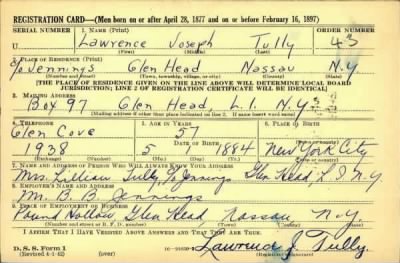 REGISTRATION CARD—(Men born on or after April 28, 1877 and on or before February 16, 1897)
SERIAL NUMBER 1. NAME (Print) ORDER NUMBER
U Lawrence Joseph Tully 43
2. PLACE OF RESIDENCE (Print)
Jennings Glen Head Nassau N.Y
(Number and street) (Town, township, village, or city) (County) (State)
[THE PLACE OF RESIDENCE GIVEN ON THE LINE ABOVE WILL DETERMINE LOCAL BOARD
JURISDICTION; LINE 2 OF REGISTRATION CERTIFICATE WILL BE IDENTICAL]
3. MAILING ADDRESS
Box 97 Glen Head, L.I. N.Y
[Mailing address if other than place indicated on line 2. If same insert word same]
4. TELEPHONE 5. AGE IN YEARS 6. PLACE OF BIRTH
Glen Cove 57
DATE OF BIRTH
1938 5 1 1884 New York City
(Exchange) (Number) (Mo.) (Day) (Yr.) (Town or county) (State or country)
7. NAME AND ADDRESS OF PERSON WHO WILL ALWAYS KNOW YOUR ADDRESS
Mrs. Lillian Tully Jennings Glen Head L I N.Y
8. EMPLOYER'S NAME AND ADDRESS
M. B. B. Jennings
9. PLACE OF EMPLOYMENT OR BUSINESS
Pound Hollow, Glen Head, Nassau N.Y.
(Number and street or R. F. D. number) (Town) (County) (State)
I AFFIRM THAT I HAVE VERIFIED ABOVE ANSWERS AND THAT THEY ARE TRUE.
D. S. S. Form 1 Lawrence J. Tully
(Revised 4-1-42) (over) (Registrant's signature)